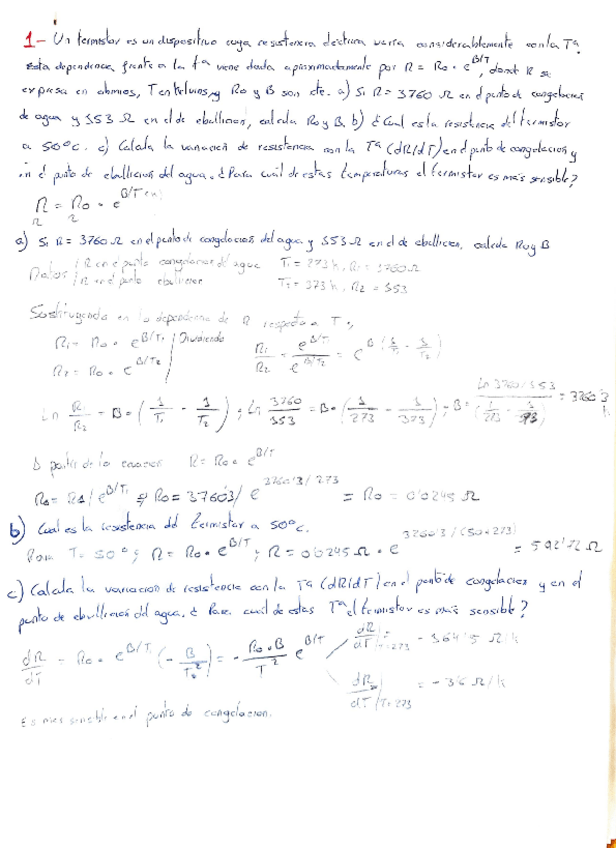 1- Un termistor es un dispositivo cuya resistencia eléctrica varía considerablemente con la Tª.
Esta dependencia frente a la tª viene dada aproximadamente por R = R0 · e^B/T, donde R se
expresa en ohmios, T en kelvins, y R0 y B son cte. a) Si R = 3760 Ω en el punto de congelacion
de agua y 353 Ω en el de ebullicion, calcula R0 y B. b) ¿Cual es la resistencia del termistor
a 50ºC. c) Calcula la variacion de resistencia con la Tª (dR/dT) en el punto de congelacion y
en el punto de ebullicion del agua. ¿Para cuál de estas temperaturas el termistor es más sensible?
R = R0 · e^B/T
Ω Ω
a) Si R = 3760 Ω en el punto de congelacion del agua y 353 Ω en el de ebullicion, calcula R0 y B
Datos / R en el punto congelacion del agua T1 = 273 k, R1 = 3760 Ω
/ R en el punto ebullicion T2 = 373 k, R2 = 353
Sustituyendo en la dependencia de R respecto a T:
R1 = R0 · e^B/T1 / Dividiendo R1/R2 = e^B/T1 / e^B/T2 = e^B(1/T1 - 1/T2)
R2 = R0 · e^B/T2
Ln R1/R2 = B · (1/T1 - 1/T2); Ln 3760/353 = B · (1/273 - 1/373); B = Ln 3760/353 / (1/273 - 1/373) = 3760'3 k
A partir de la ecuacion R = R0 · e^B/T
R0 = R1/e^B/T1 ⇒ R0 = 3760'3/e^3760'3/273 = R0 = 0'0245 Ω
b) Cual es la resistencia del termistor a 50ºC.
Para T = 50º; R = R0 · e^B/T; R = 0'0245 Ω · e^3760'3/(50+273) = 592'2 Ω
c) Calcula la variacion de resistencia con la Tª (dR/dT) en el punto de congelacion y en el
punto de ebullicion del agua. ¿Para cuál de estas Tª el termistor es más sensible?
dR/dT = R0 · e^B/T (-B/T²) = - R0·B/T² e^B/T dR/dT|T=273 - 364'5 Ω/k
dR/dT|T=273 = -36 Ω/k
Es mas sensible en el punto de congelacion.